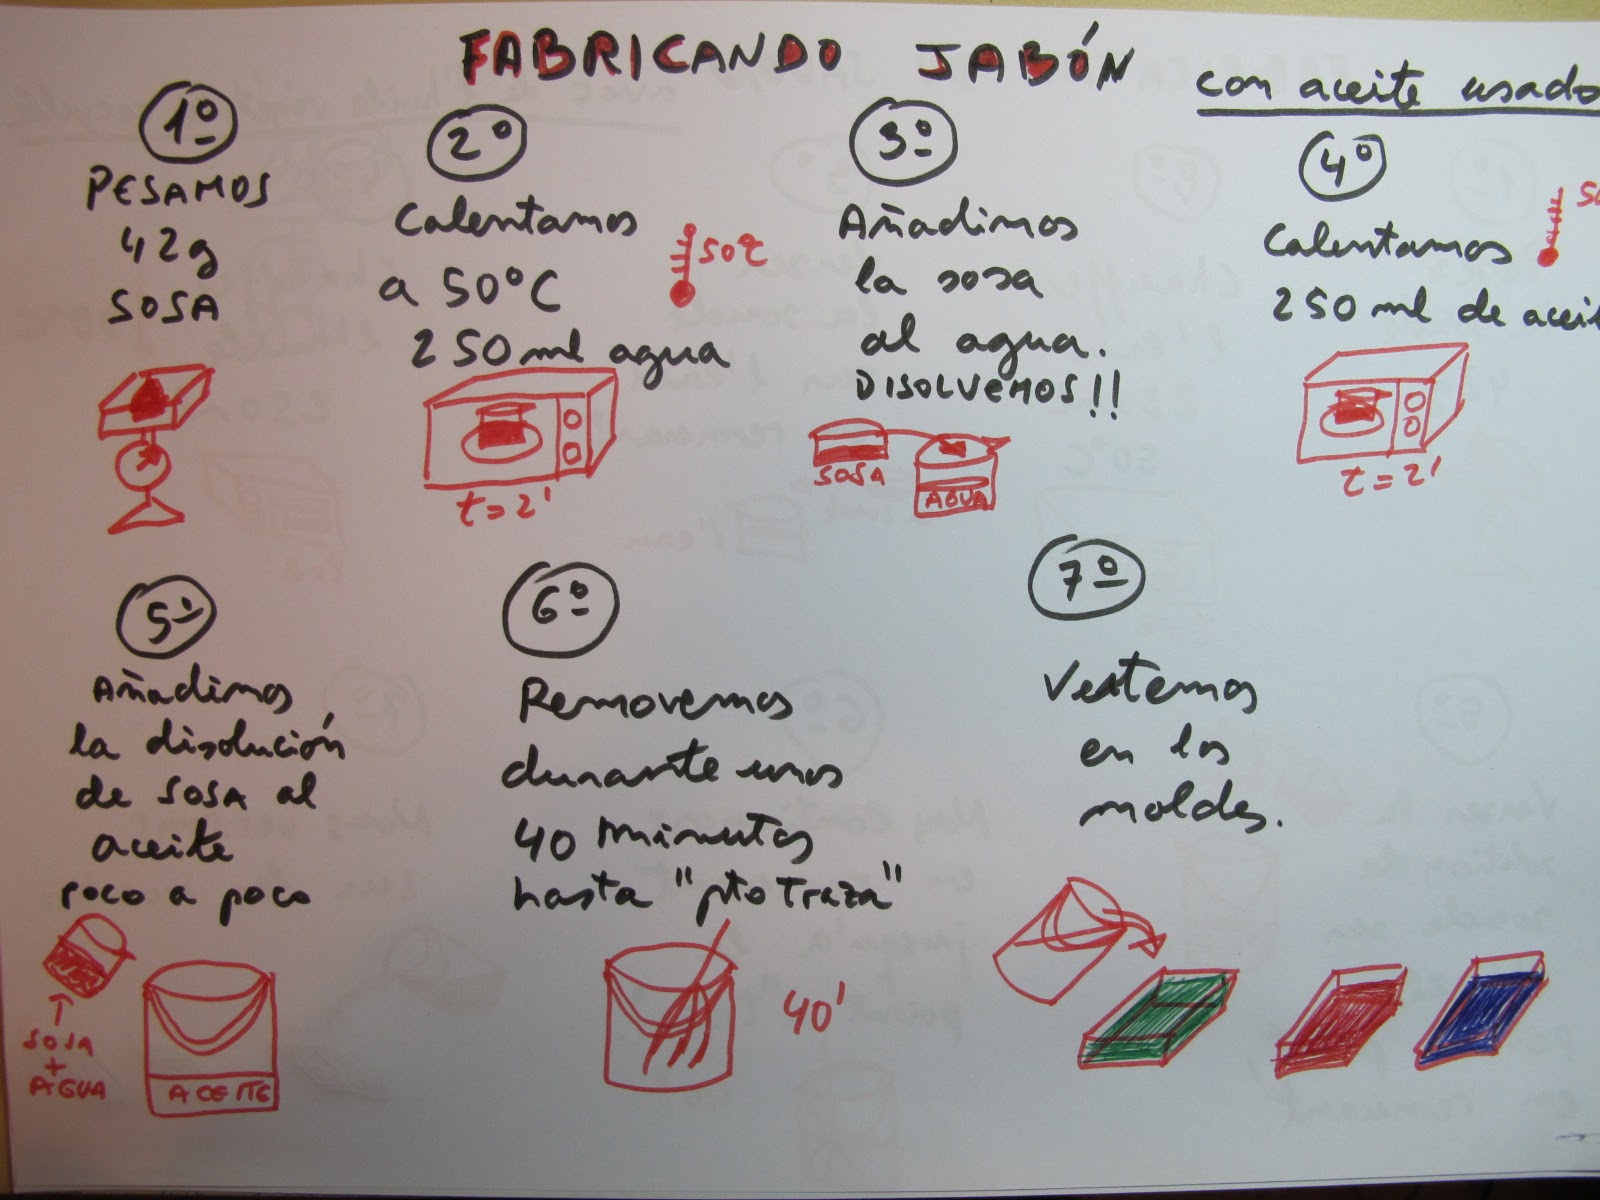 FABRICANDO JABÓN
con aceite usado
1º
PESAMOS
42g
SOSA
2º
Calentamos
a 50°C
250 ml agua
50°C
t=2'
3º
Añadimos
la sosa
al agua.
DISOLVEMOS!!
SOSA
AGUA
4º
Calentamos
250 ml de aceit
t=2'
5º
Añadimos
la disolución
de SOSA al
aceite
poco a poco
SOSA
+
AGUA
ACEITE
6º
Removemos
durante unos
40 minutos
hasta "pto Traza"
40'
7º
Vertemos
en los
moldes.